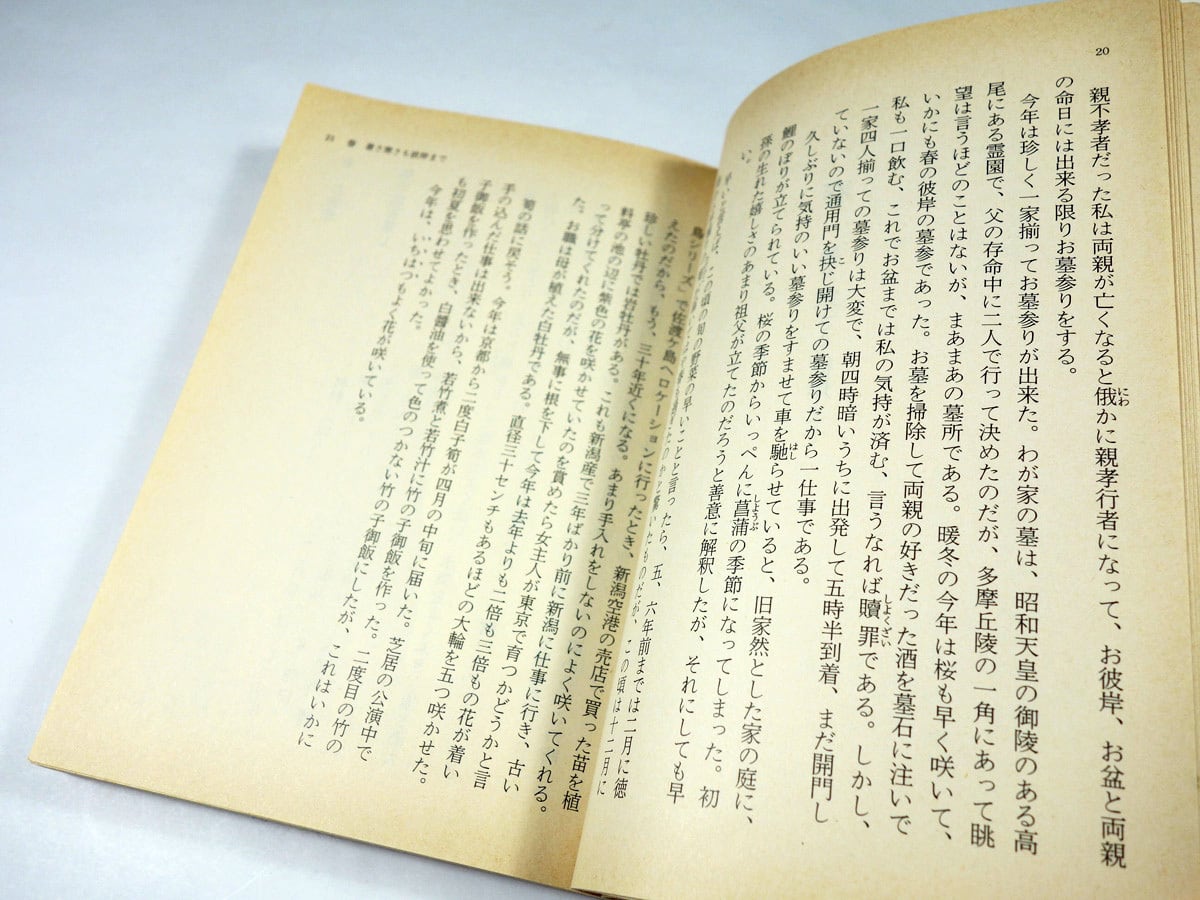 20
親不孝者だった私は両親が亡くなると俄かに親孝行者になって、お彼岸、お盆と両親
の命日には出来る限りお墓参りをする。
今年は珍しく一家揃ってお墓参りが出来た。わが家の墓は、昭和天皇の御陵のある高
尾にある霊園で、父の存命中に二人で行って決めたのだが、多摩丘陵の一角にあって眺
望は言うほどのことはないが、まあまあの墓所である。暖冬の今年は桜も早く咲いて、
いかにも春の彼岸の墓参であった。お墓を掃除して両親の好きだった酒を墓石に注いで
私も一口飲む、これでお盆までは私の気持が済む、言うなれば贖罪である。しかし、
一家四人揃っての墓参りは大変で、朝四時暗いうちに出発して五時半到着、まだ開門し
ていないので通用門を抉じ開けての墓参りだから一仕事である。
久しぶりに気持のいい墓参りをすませて車を馳らせていると、旧家然とした家の庭に、
鯉のぼりが立てられている。桜の季節からいっぺんに菖蒲の季節になってしまった。初
孫の生れた嬉しさのあまり祖父が立てたのだろうと善意に解釈したが、それにしても早
い。
この頃の旬の野菜の早いことと言ったら、五、六年前までは二月に徳
島
この頃は十二月に
島シリーズ」で佐渡ヶ島へロケーションに行ったとき、新潟空港の売店で買った苗を植
えたのだから、もう、三十年近くになる。あまり手入れをしないのによく咲いてくれる。
珍しい牡丹では岩牡丹がある。これも新潟産で三年ばかり前に新潟に仕事に行き、古い
料亭の池の辺に紫色の花を咲かせていたのを賞めたら女主人が東京で育つかどうかと言
って分けてくれたのだが、無事に根を下して今年は去年よりも二倍も三倍もの花が着い
た。お職は母が植えた白牡丹である。直径三十センチもあるほどの大輪を五つ咲かせた。
筍の話に戻そう。今年は京都から二度白子筍が四月の中旬に届いた。芝居の公演中で
手の込んだ仕事は出来ないから、若竹煮と若竹汁に竹の子御飯を作った。二度目の竹の
子御飯を作ったとき、白醤油を使って色のつかない竹の子御飯にしたが、これはいかに
も初夏を思わせてよかった。
今年は、いちはつもよく花が咲いている。
21 春 暑さ寒さも彼岸まで